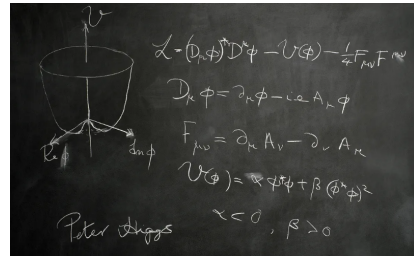 V
ℒ = (D_μ φ)* D^μ φ − V(φ) − ¼ F_μν F^μν
D_μ φ = ∂_μ φ − i e A_μ φ
F_μν = ∂_μ A_ν − ∂_ν A_μ
Re φ
Im φ
V(φ) = α φ*φ + β (φ*φ)²
α < 0 , β > 0
Peter Higgs